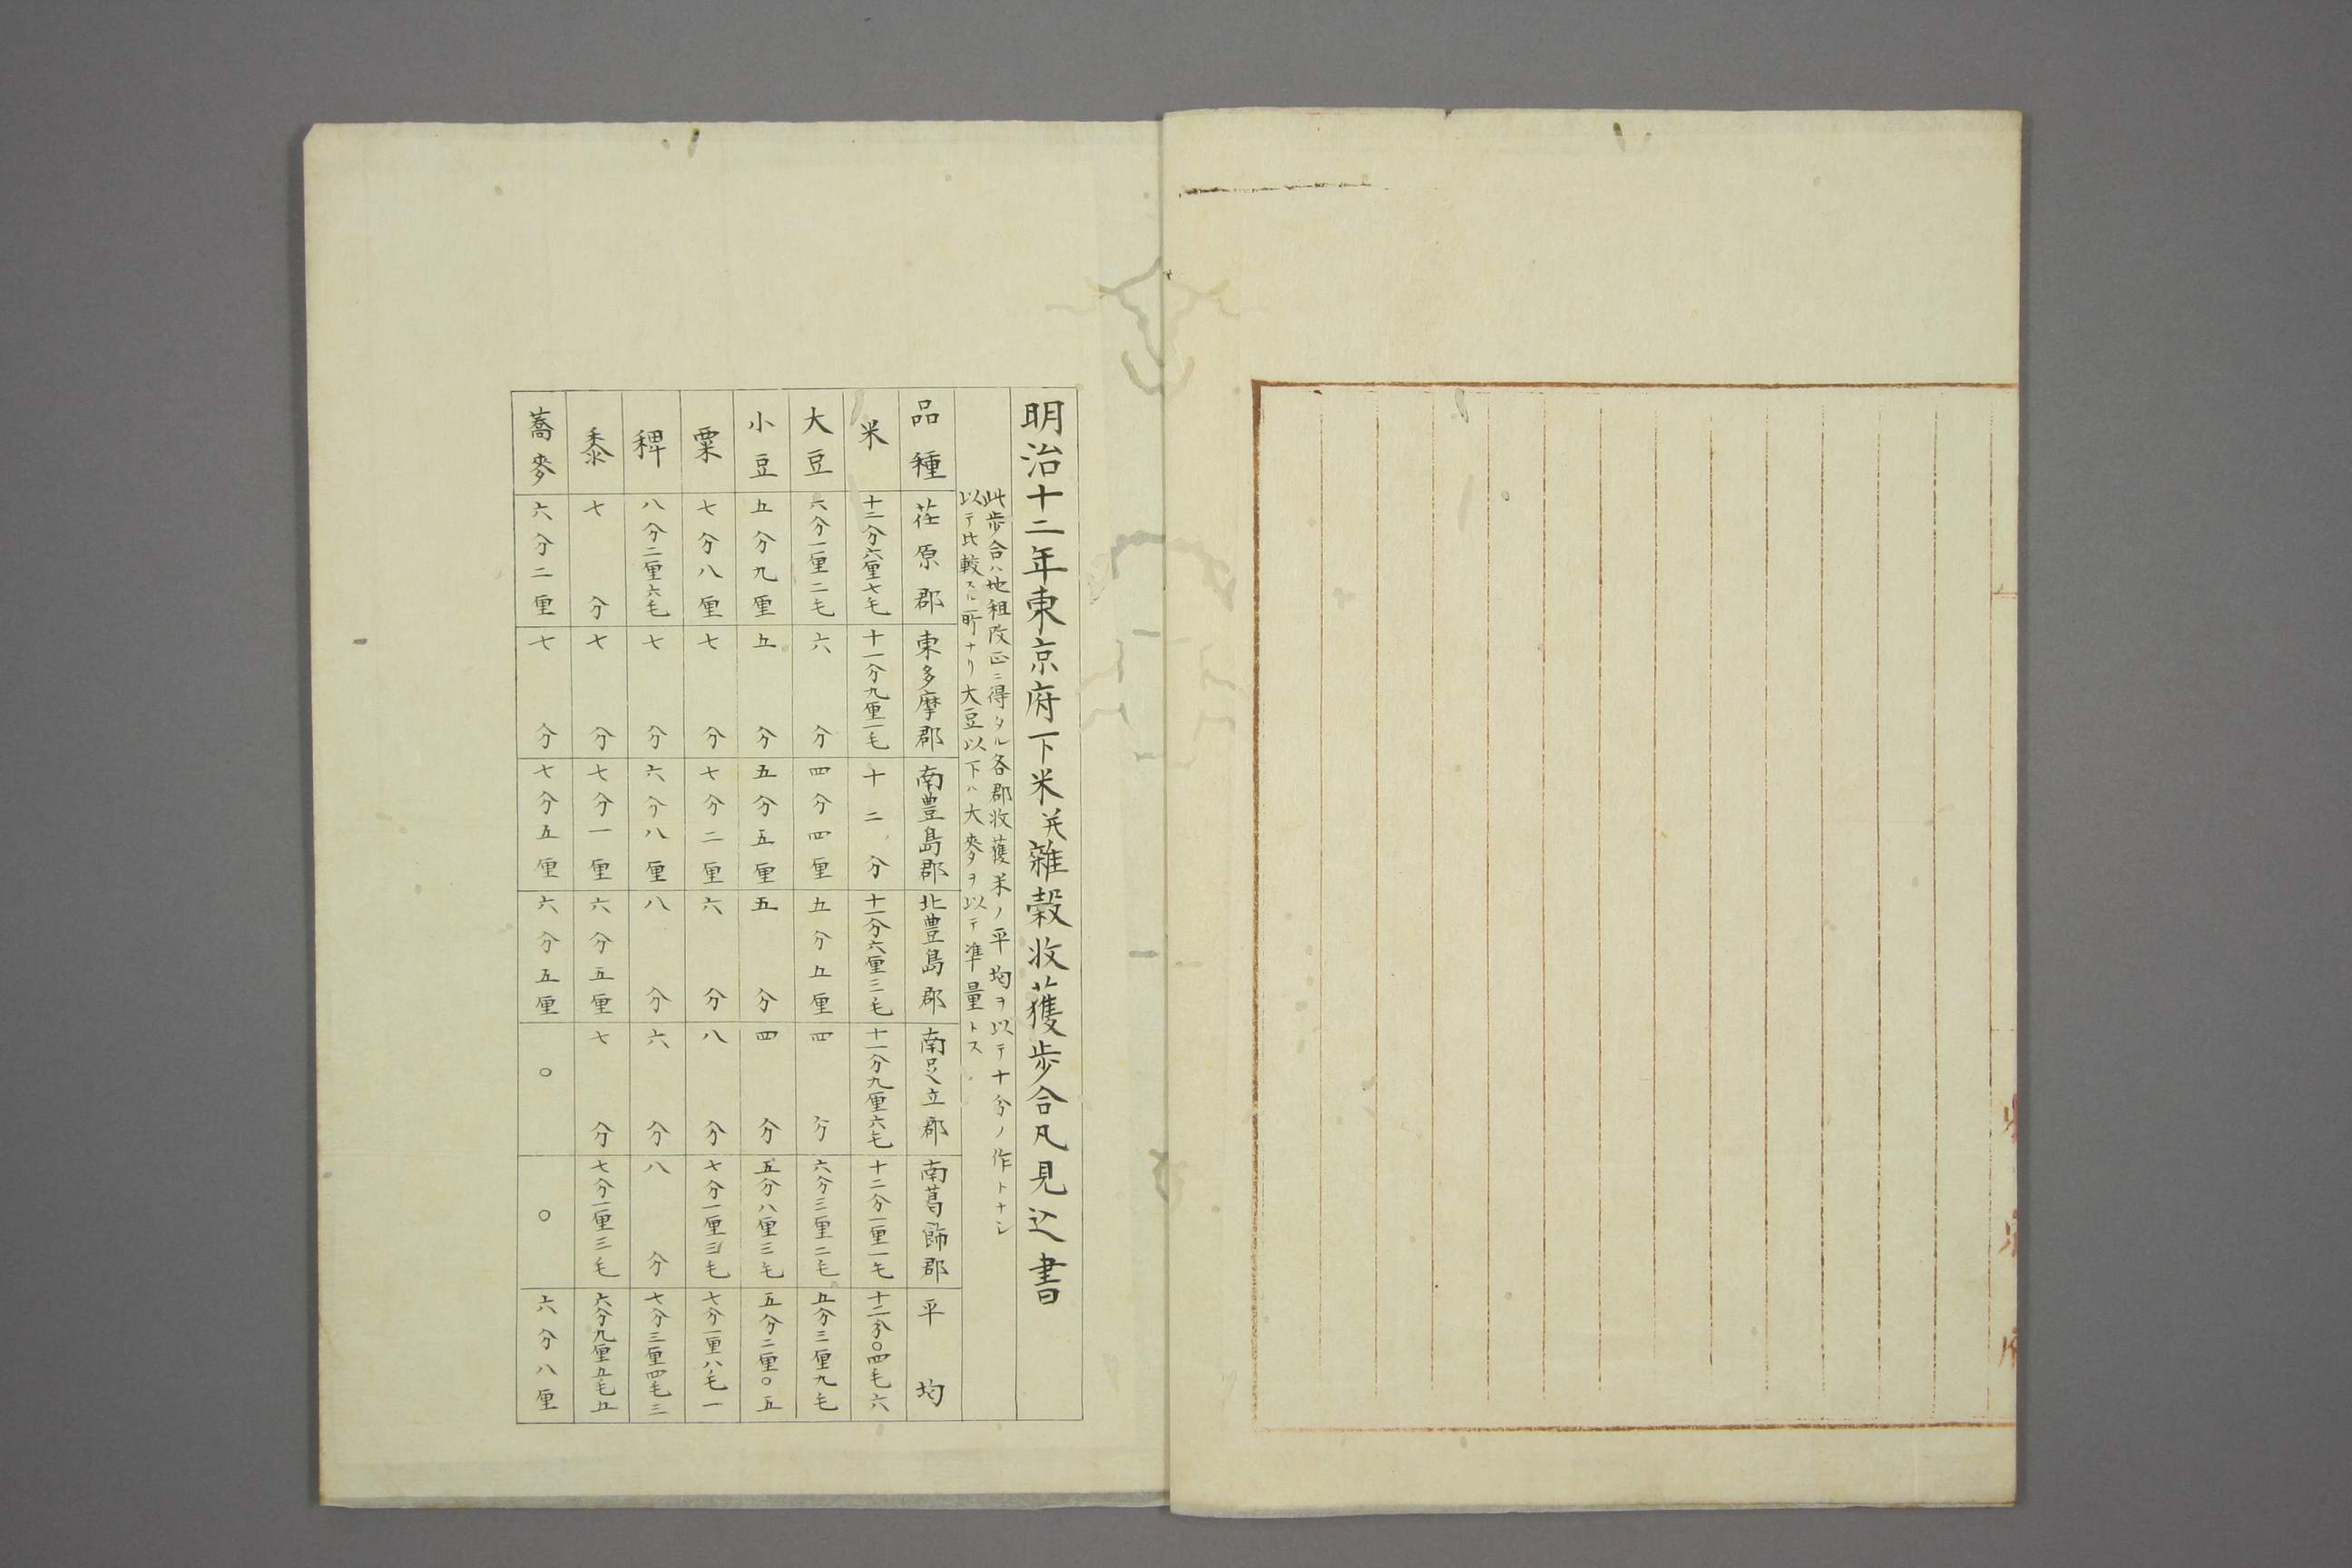 明治十二年東京府下米并雜穀收獲步合凡見込書
此步合ハ地租改正ニ得タル各郡收獲米ノ平均ヲ以テ十分ノ作トナシ
以テ比較スル所ナリ大豆以下ハ大麥ヲ以テ準量トス
品種 荏原郡 東多摩郡 南豊島郡 北豊島郡 南足立郡 南葛飾郡 平均
米 十二分六厘七毛 十一分九厘一毛 十二分 十一分六厘三毛 十一分九厘六毛 十二分一厘一毛 十二分〇四毛六
大豆 六分一厘二毛 六分 四分四厘 五分五厘 四分 六分三厘二毛 五分三厘九毛
小豆 五分九厘 五分 五分五厘 五分 四分 五分八厘三毛 五分二厘〇五
粟 七分八厘 七分 七分二厘 六分 八分 七分一厘三毛 七分一厘八毛一
稗 八分二厘六毛 七分 六分八厘 八分 六分 八分 七分三厘四毛三
黍 七分 七分 七分一厘 六分五厘 七分 七分一厘三毛 六分九厘五毛五
蕎麥 六分二厘 七分 七分五厘 六分五厘 〇 〇 六分八厘